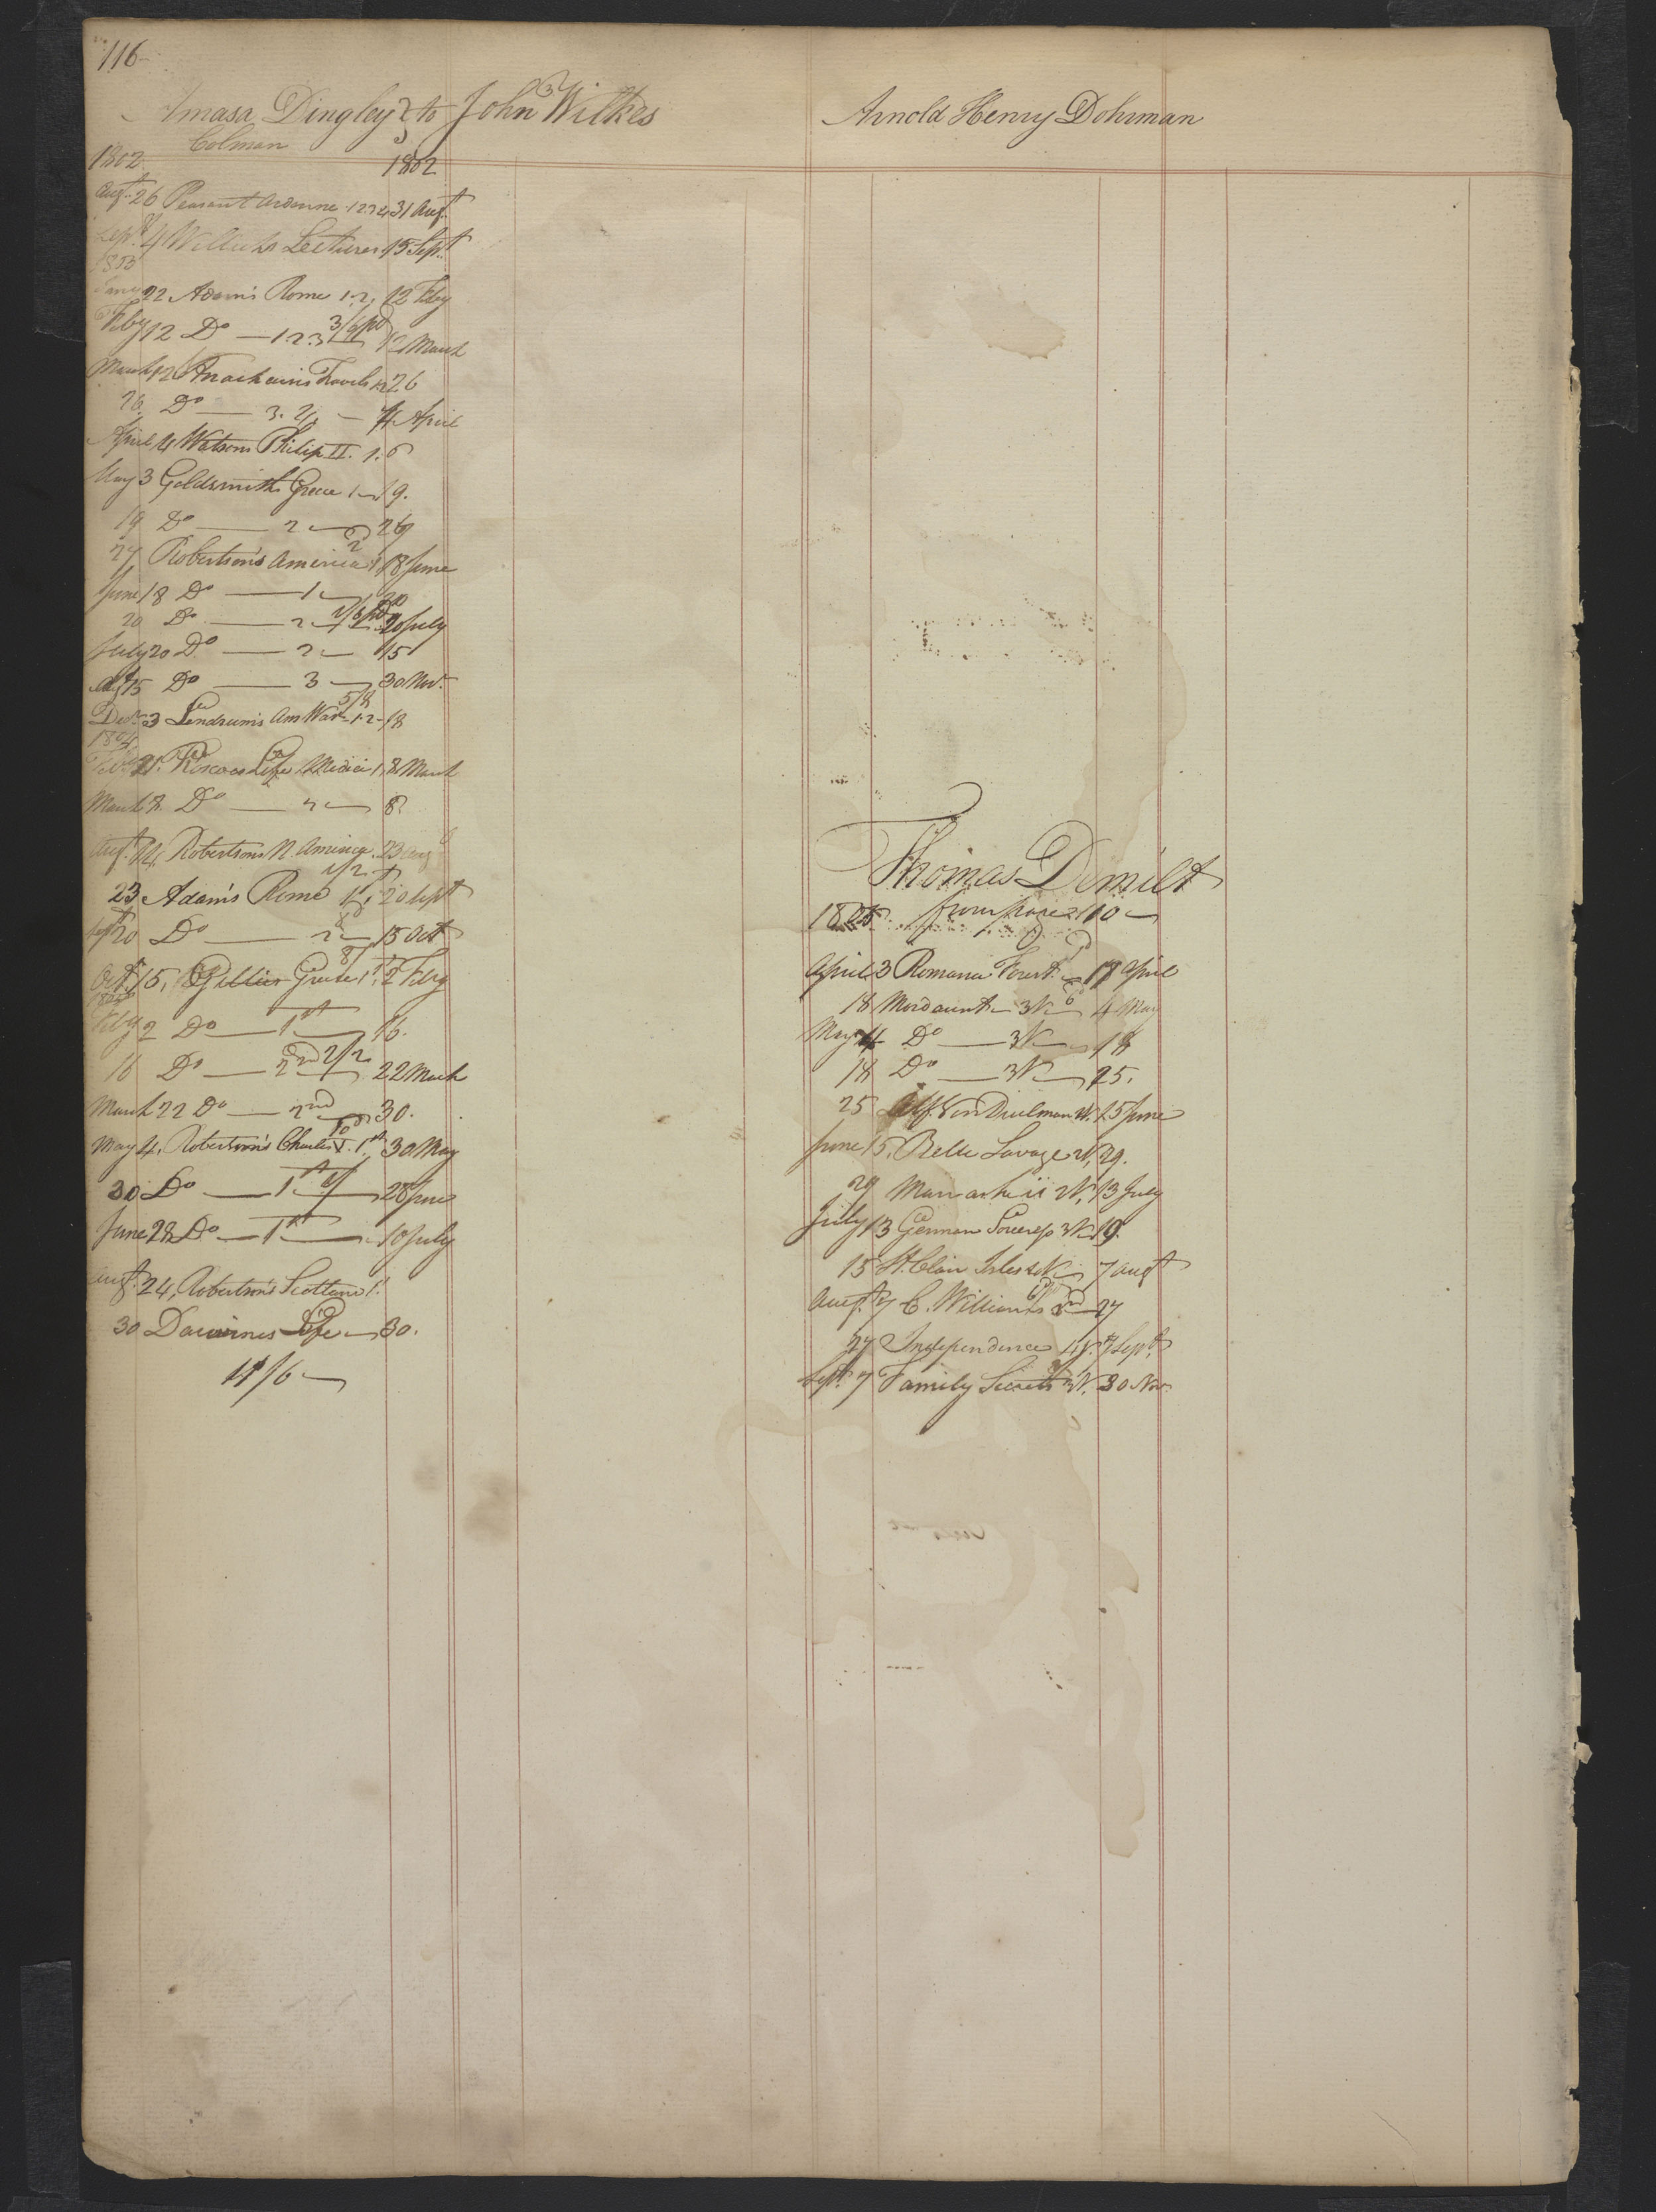 116
Amasa Dingley to John Wilkes
Colman
1802 1802
Augt. 26 Peasant Ardenne 1.2.3.4 31 Augt.
Sept. 4 Willichs Lectures 15 Sept.
1803
Jany 22 Adam's Rome 1.2. 12 Feby
Feby 12 Do — 1 2 3 3/6 pd 12 March
March 12 Anacharsis Travels 1.2 26
26 Do — 3. 4 — 4 April
April 4 Watsons Philip II. 1. 6
May 3 Goldsmith Greece 1 — 19.
19 Do — 2 — 26
27 Robertson's America 1 18 June
June 18 Do — 1 — 20
20 Do — 2 — 1/6 pd 20 July
July 20 Do — 2 — 15
Augt 15 Do — 3 — 30 Nov.
Decr. 3 Lendrum's Am War 1.2 5/8 18
1804
Feby 21. Roscoes Life Medici 1. 8 March
March 8. Do — 2 — 8
Augt. 14. Robertsons N. America. 23 Aug
23 Adam's Rome 1st 1/2 20 Sept
Sept 20 Do — 2 — 15 Oct
Oct. 15, Gillies Greece 1st. 2 Feby
1805
Feby 2 Do — 1st — 16.
16 Do — 2nd 2/2 22 March
March 22 Do — 2nd — 30.
May 4. Robertson's Charles V. 1st. 30 May
30 Do — 1st 1/ 28 June
June 28 Do — 1st — 10 July
Augt. 24, Robertson's Scotland 1.
30 Darwines Life — 30.
11/6
Arnold Henry Dohrman
Thomas Demilt
1805. from page 110
April 3 Romance Forest — 17 April
18 Mordaunt — 3V — 4 May
May 4 Do — 3V — 18
18 Do — 3V — 25.
25 Alf. Von Duelman V. 25 June
June 15, Belle Savage 2V, 29.
29 Man as he is 2V, 13 July
July 13 German Sorceress 3V 19.
15 St. Clair Isles 2V 7 Augt
Augt. 7 C. Williams 27
27 Independence 1V. 7 Sept.
Sept. 7 Family Secrets 3V. 30 Nov